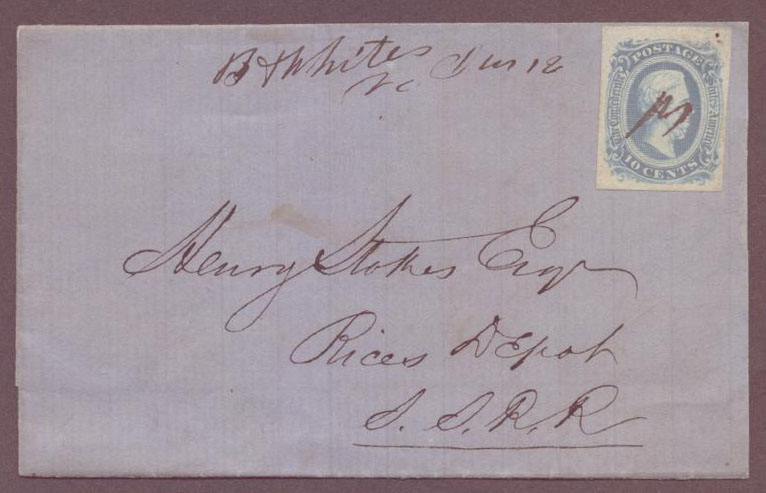 B & Whites Jun 12
Va
POSTAGE
The Confederate States America
10 CENTS
Henry Stokes Esqr
Rices Depot
S. S. R. R